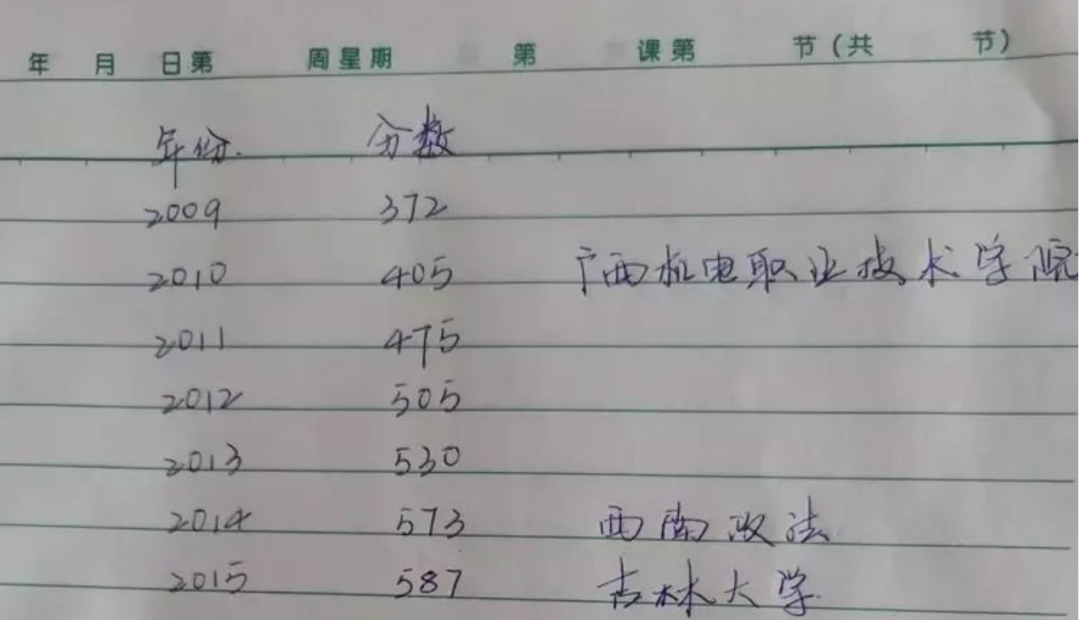 年 月 日第 周星期 第 课第 节(共 节)
年份. 分数
2009 372
2010 405 广西机电职业技术学院
2011 475
2012 505
2013 530
2014 573 西南政法
2015 587 吉林大学